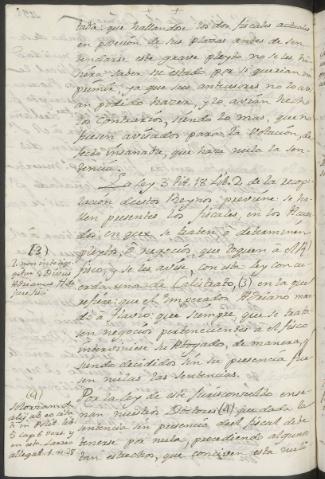 tada; que hallandose los dos fiscales actuales
en posesion de sus plazas antes de sen-
tenciarse este grave pleyto no se les hi-
ciera saber su estado por si querian im-
primir, ya que sus antecesores no lo avi-
an podido hacer, y lo avian hecho
los contrarios, siendo lo mas, que no
fuesen avisados para la votacion, de-
fecto insanable, que hace nula la sen-
tencia.
La ley 3 tit. 18 lib. 2 de la recopi-
lacion de estos Reynos previene se ha-
llen presentes los fiscales, en los Acuer-
dos en que se traten o determinen
pleytos, o negocios, que toquen a el fi-
fisco, y se les avise, con esta ley con cu-
erda una de Calistrato, (3) en la que
refiere: que el Emperador Adriano man-
do a Flavio: que siempre, que se trata-
sen negocios pertenecientes a el fisco
interviniese su Abogado, de manera, q.
siendo decididos sin su presencia fue-
sen nulas las sentencias.
Por la ley de este Jurisconsulto ense-
ñan nuestros Doctores (4) que dada la
sentencia sin presencia del fiscal debe
tenerse por nula, precediendo algunos
tan estrechos, que conciben esta nuli-
(3)
Divus
Adrianus
Jure fisci
(4)